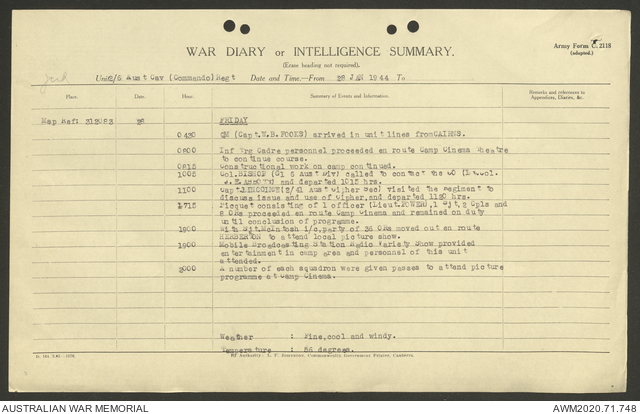 WAR DIARY or INTELLIGENCE SUMMARY.
Army Form C. 2118
(adapted.)
(Erase heading not required).
Unit 2/6 Aust Cav (Commando) Regt Date and Time.—From 28 JAN 1944 To
Place. Date. Hour. Summary of Events and Information. Remarks and references to
Appendices, Diaries, &c.
Map Ref: 28 FRIDAY
0430 QM (Capt. W.B. FOOKS) arrived in unit lines from CAIRNS.
0800 Inf Org Cadre personnel proceeded en route Camp Cinema Theatre
to continue course.
0815 Constructional work on camp continued.
1005 Col. BISHOP (G1 6 Aust Div) called to contact the CO (Lt.Col.
E. and departed 1015 hrs.
1100 Capt (2/41 Aust Cipher Sec) visited the Regiment to
discuss issue and use of cipher, and departed 1120 hrs.
1715 Picquet consisting of 1 officer (Lieut. POWER), 1 Sjt, 2 Cpls and
8 ORs proceeded en route Camp Cinema and remained on duty
until conclusion of programme.
1900 With Sjt. McIntosh i/c, party of 36 ORs moved out en route
HERBERTON to attend local picture show.
1900 Mobile Broadcasting Station Radio Variety Show provided
entertainment in camp area and personnel of this unit
attended.
2000 A number of each squadron were given passes to attend picture
programme at Camp Cinema.
Weather : Fine, cool and windy.
Temperature : 56 degrees.
By Authority: L. F. Johnston, Commonwealth Government Printer, Canberra.
AUSTRALIAN WAR MEMORIAL AWM2020.71.748